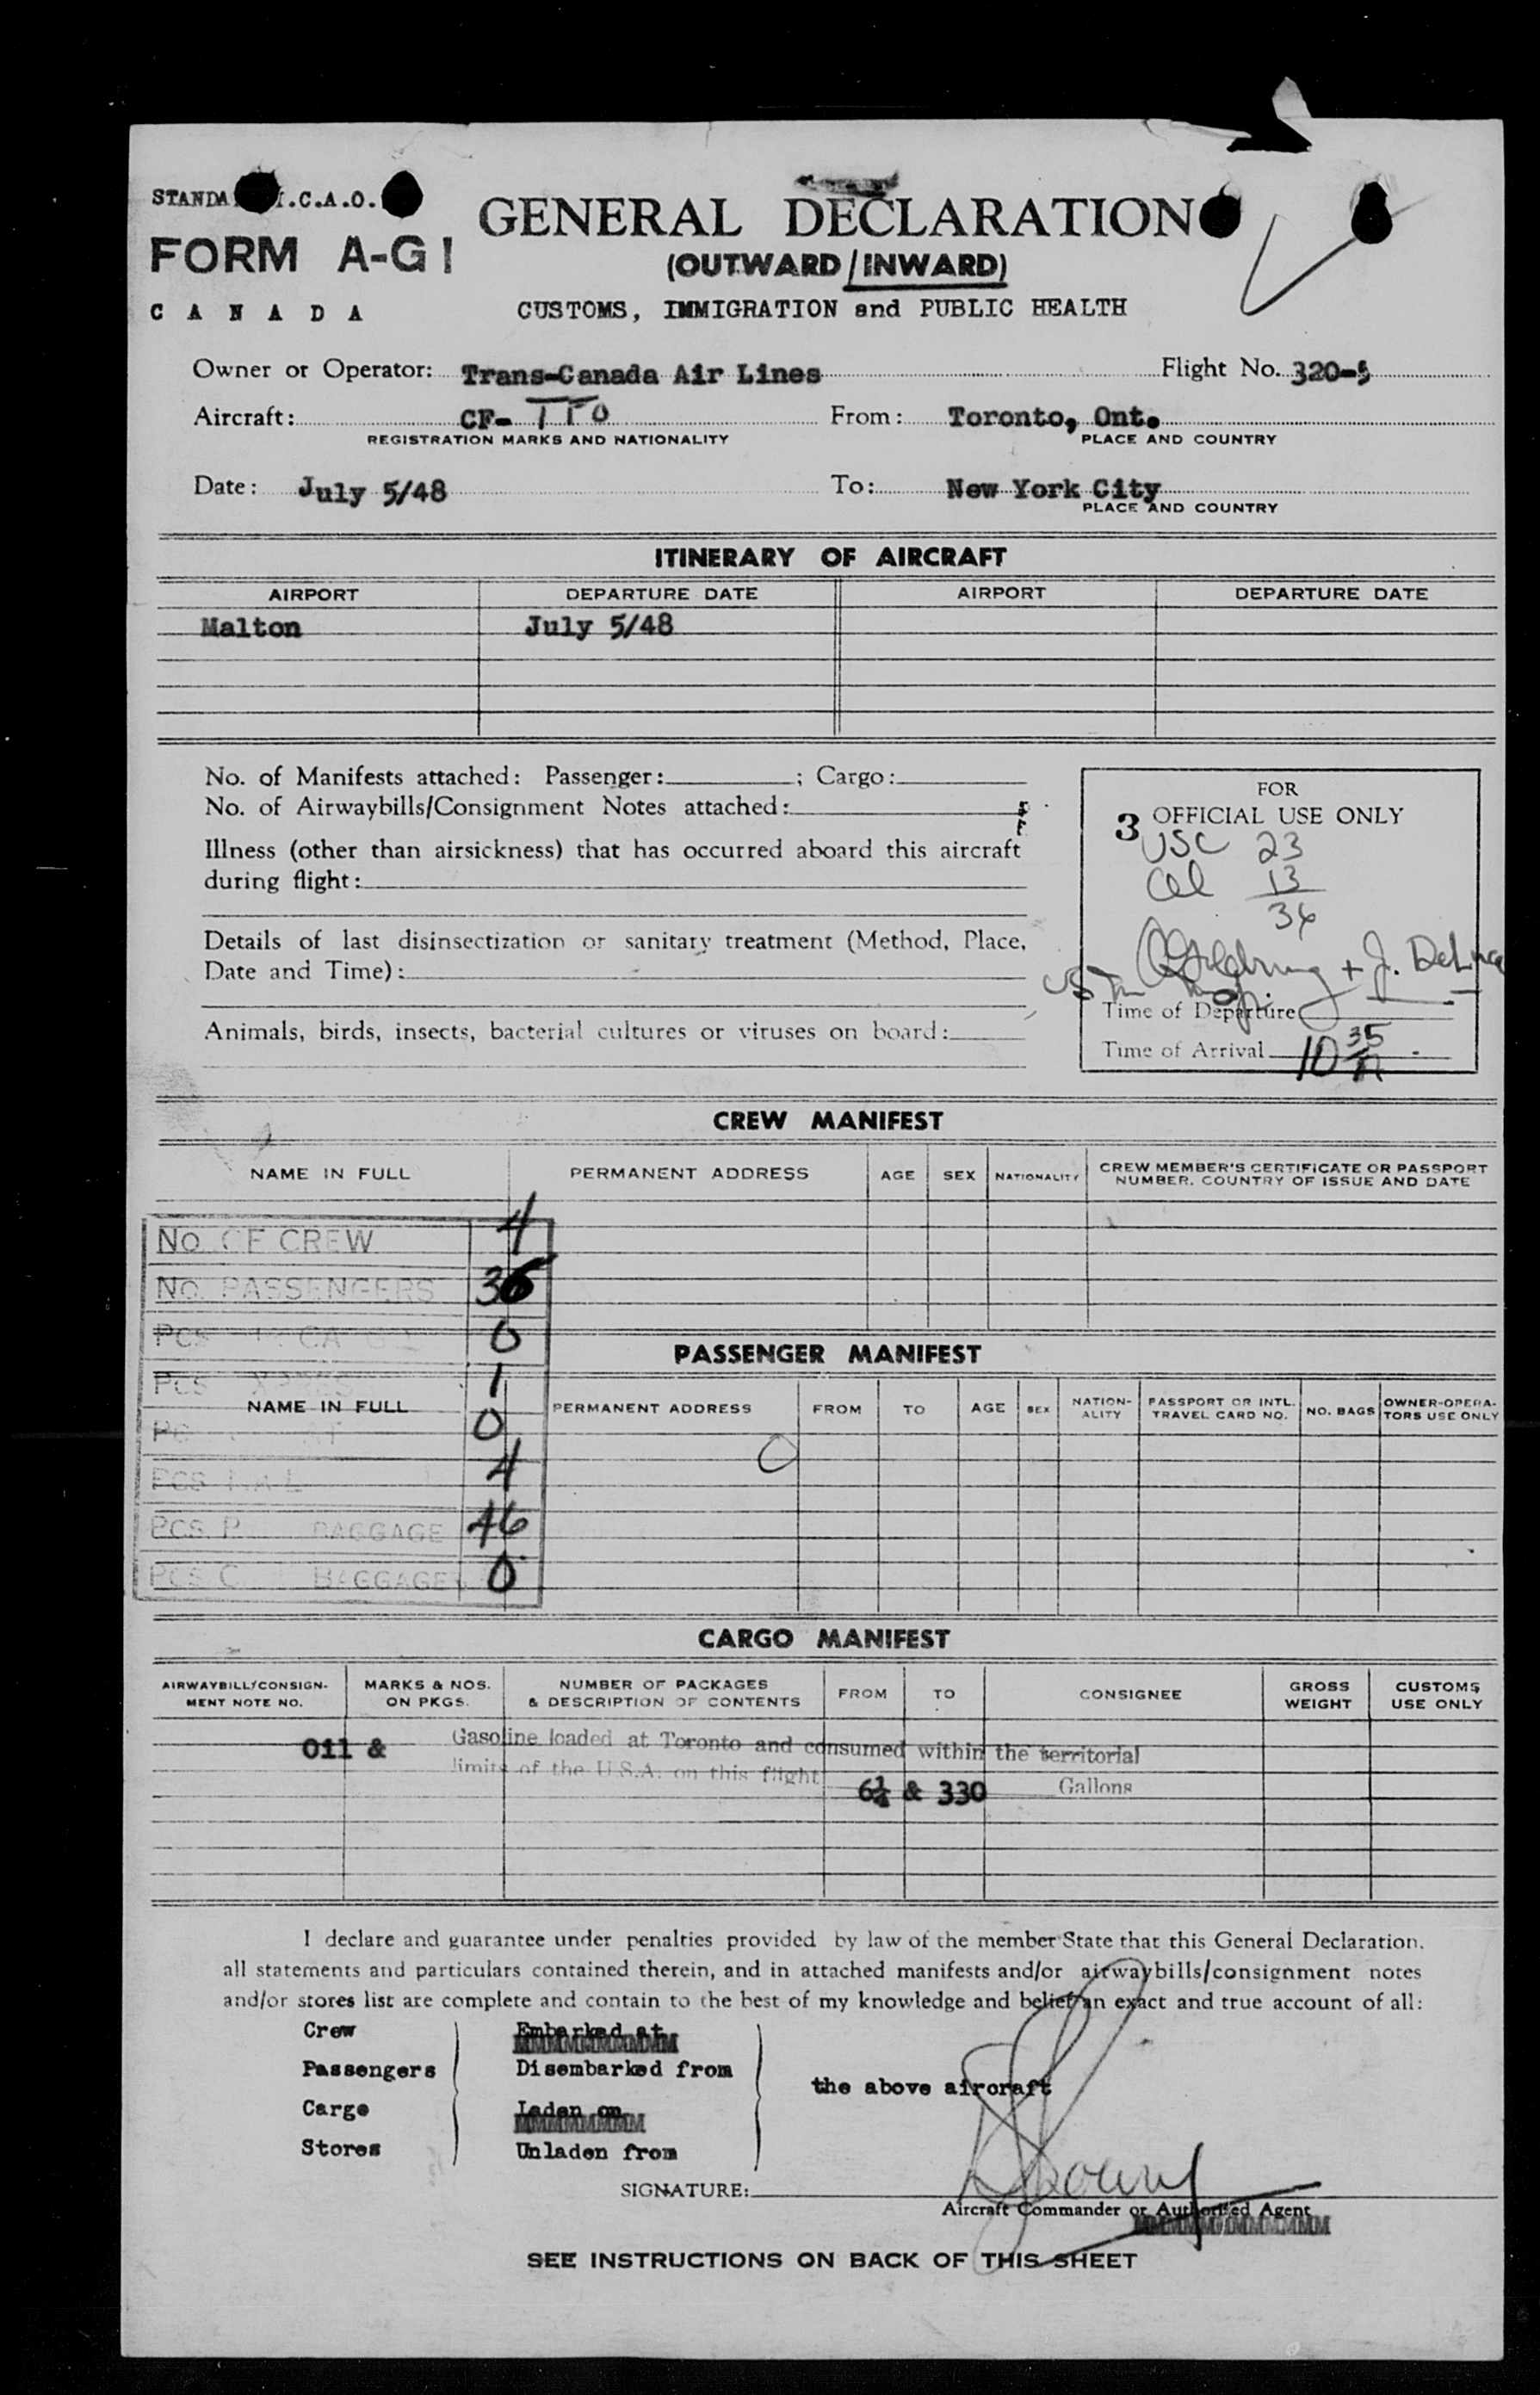 I.C.A.O.
FORM A-G1
CANADA
GENERAL DECLARATION
(OUTWARD/INWARD)
CUSTOMS, IMMIGRATION and PUBLIC HEALTH
Owner or Operator: Trans-Canada Air Lines Flight No. 320-5
Aircraft: CF- TFO From: Toronto, Ont.
REGISTRATION MARKS AND NATIONALITY PLACE AND COUNTRY
Date: July 5/48 To: New York City
PLACE AND COUNTRY
ITINERARY OF AIRCRAFT
AIRPORT DEPARTURE DATE AIRPORT DEPARTURE DATE
Malton July 5/48
No. of Manifests attached: Passenger: ; Cargo:
No. of Airwaybills/Consignment Notes attached:
Illness (other than airsickness) that has occurred aboard this aircraft
during flight:
Details of last disinsectization or sanitary treatment (Method, Place,
Date and Time):
Animals, birds, insects, bacterial cultures or viruses on board:
FOR
3 OFFICIAL USE ONLY
USC 23
13
36
+ J.
Time of Departure
Time of Arrival 10 35
CREW MANIFEST
NAME IN FULL PERMANENT ADDRESS AGE SEX NATIONALITY CREW MEMBER'S CERTIFICATE OR PASSPORT
NUMBER, COUNTRY OF ISSUE AND DATE
NO OF CREW 4
NO. PASSENGERS 36
PCS 0
PCS 1
0
PCS 4
PCS P BAGGAGE 46
PCS C BAGGAGE 0
PASSENGER MANIFEST
NAME IN FULL PERMANENT ADDRESS FROM TO AGE SEX NATION-
ALITY PASSPORT OR INTL.
TRAVEL CARD NO. NO. BAGS OWNER-OPERA-
TORS USE ONLY
CARGO MANIFEST
AIRWAYBILL/CONSIGN-
MENT NOTE NO. MARKS & NOS.
ON PKGS. NUMBER OF PACKAGES
& DESCRIPTION OF CONTENTS FROM TO CONSIGNEE GROSS
WEIGHT CUSTOMS
USE ONLY
Oil & Gasoline loaded at Toronto and consumed within the territorial
limits of the U.S.A. on this flight
& 330 Gallons
I declare and guarantee under penalties provided by law of the member State that this General Declaration,
all statements and particulars contained therein, and in attached manifests and/or airwaybills/consignment notes
and/or stores list are complete and contain to the best of my knowledge and belief an exact and true account of all:
Crew Embarked at
Passengers Disembarked from
the above aircraft
Cargo Laden on
Stores Unladen from
SIGNATURE:
Aircraft Commander or Authorised Agent
SEE INSTRUCTIONS ON BACK OF THIS SHEET